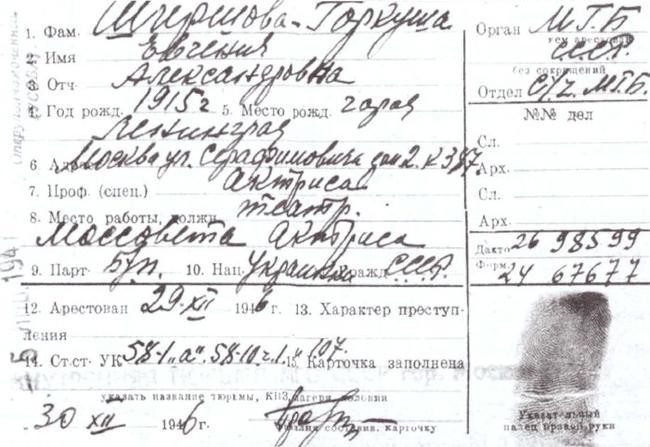 1. Фам. Ширшова-Горкуша
2. Имя Евгения
3. Отч Александровна
4. Год рожд. 1915 г 5. Место рожд. город
Ленинград
6. Адрес Москва ул. Серафимовича дом 2. к 387.
7. Проф. (спец.) Актриса
8. Место работы, должн. театр.
Моссовета актриса
9. Парт б/п. 10. Нац. украинка Гражд. СССР.
12. Арестован 29. XII 1946 г. 13. Характер преступ-
ления
14. Ст.ст УК 58-1 „а". 58-10 ч. 1. 107. 15. Карточка заполнена
указать название тюрьмы, КПЗ, лагеря, колонии
30 XII 1946 г.
составив. карточку
Орган М.Г.Б
кем арестован
СССР.
без сокращений
Отдел с/ч. М.Г.Б.
№№ дел
Сл.
Арх.
Сл.
Арх.
Дакто 26 98599
Форм. 24 67677
Указательный
палец правой руки